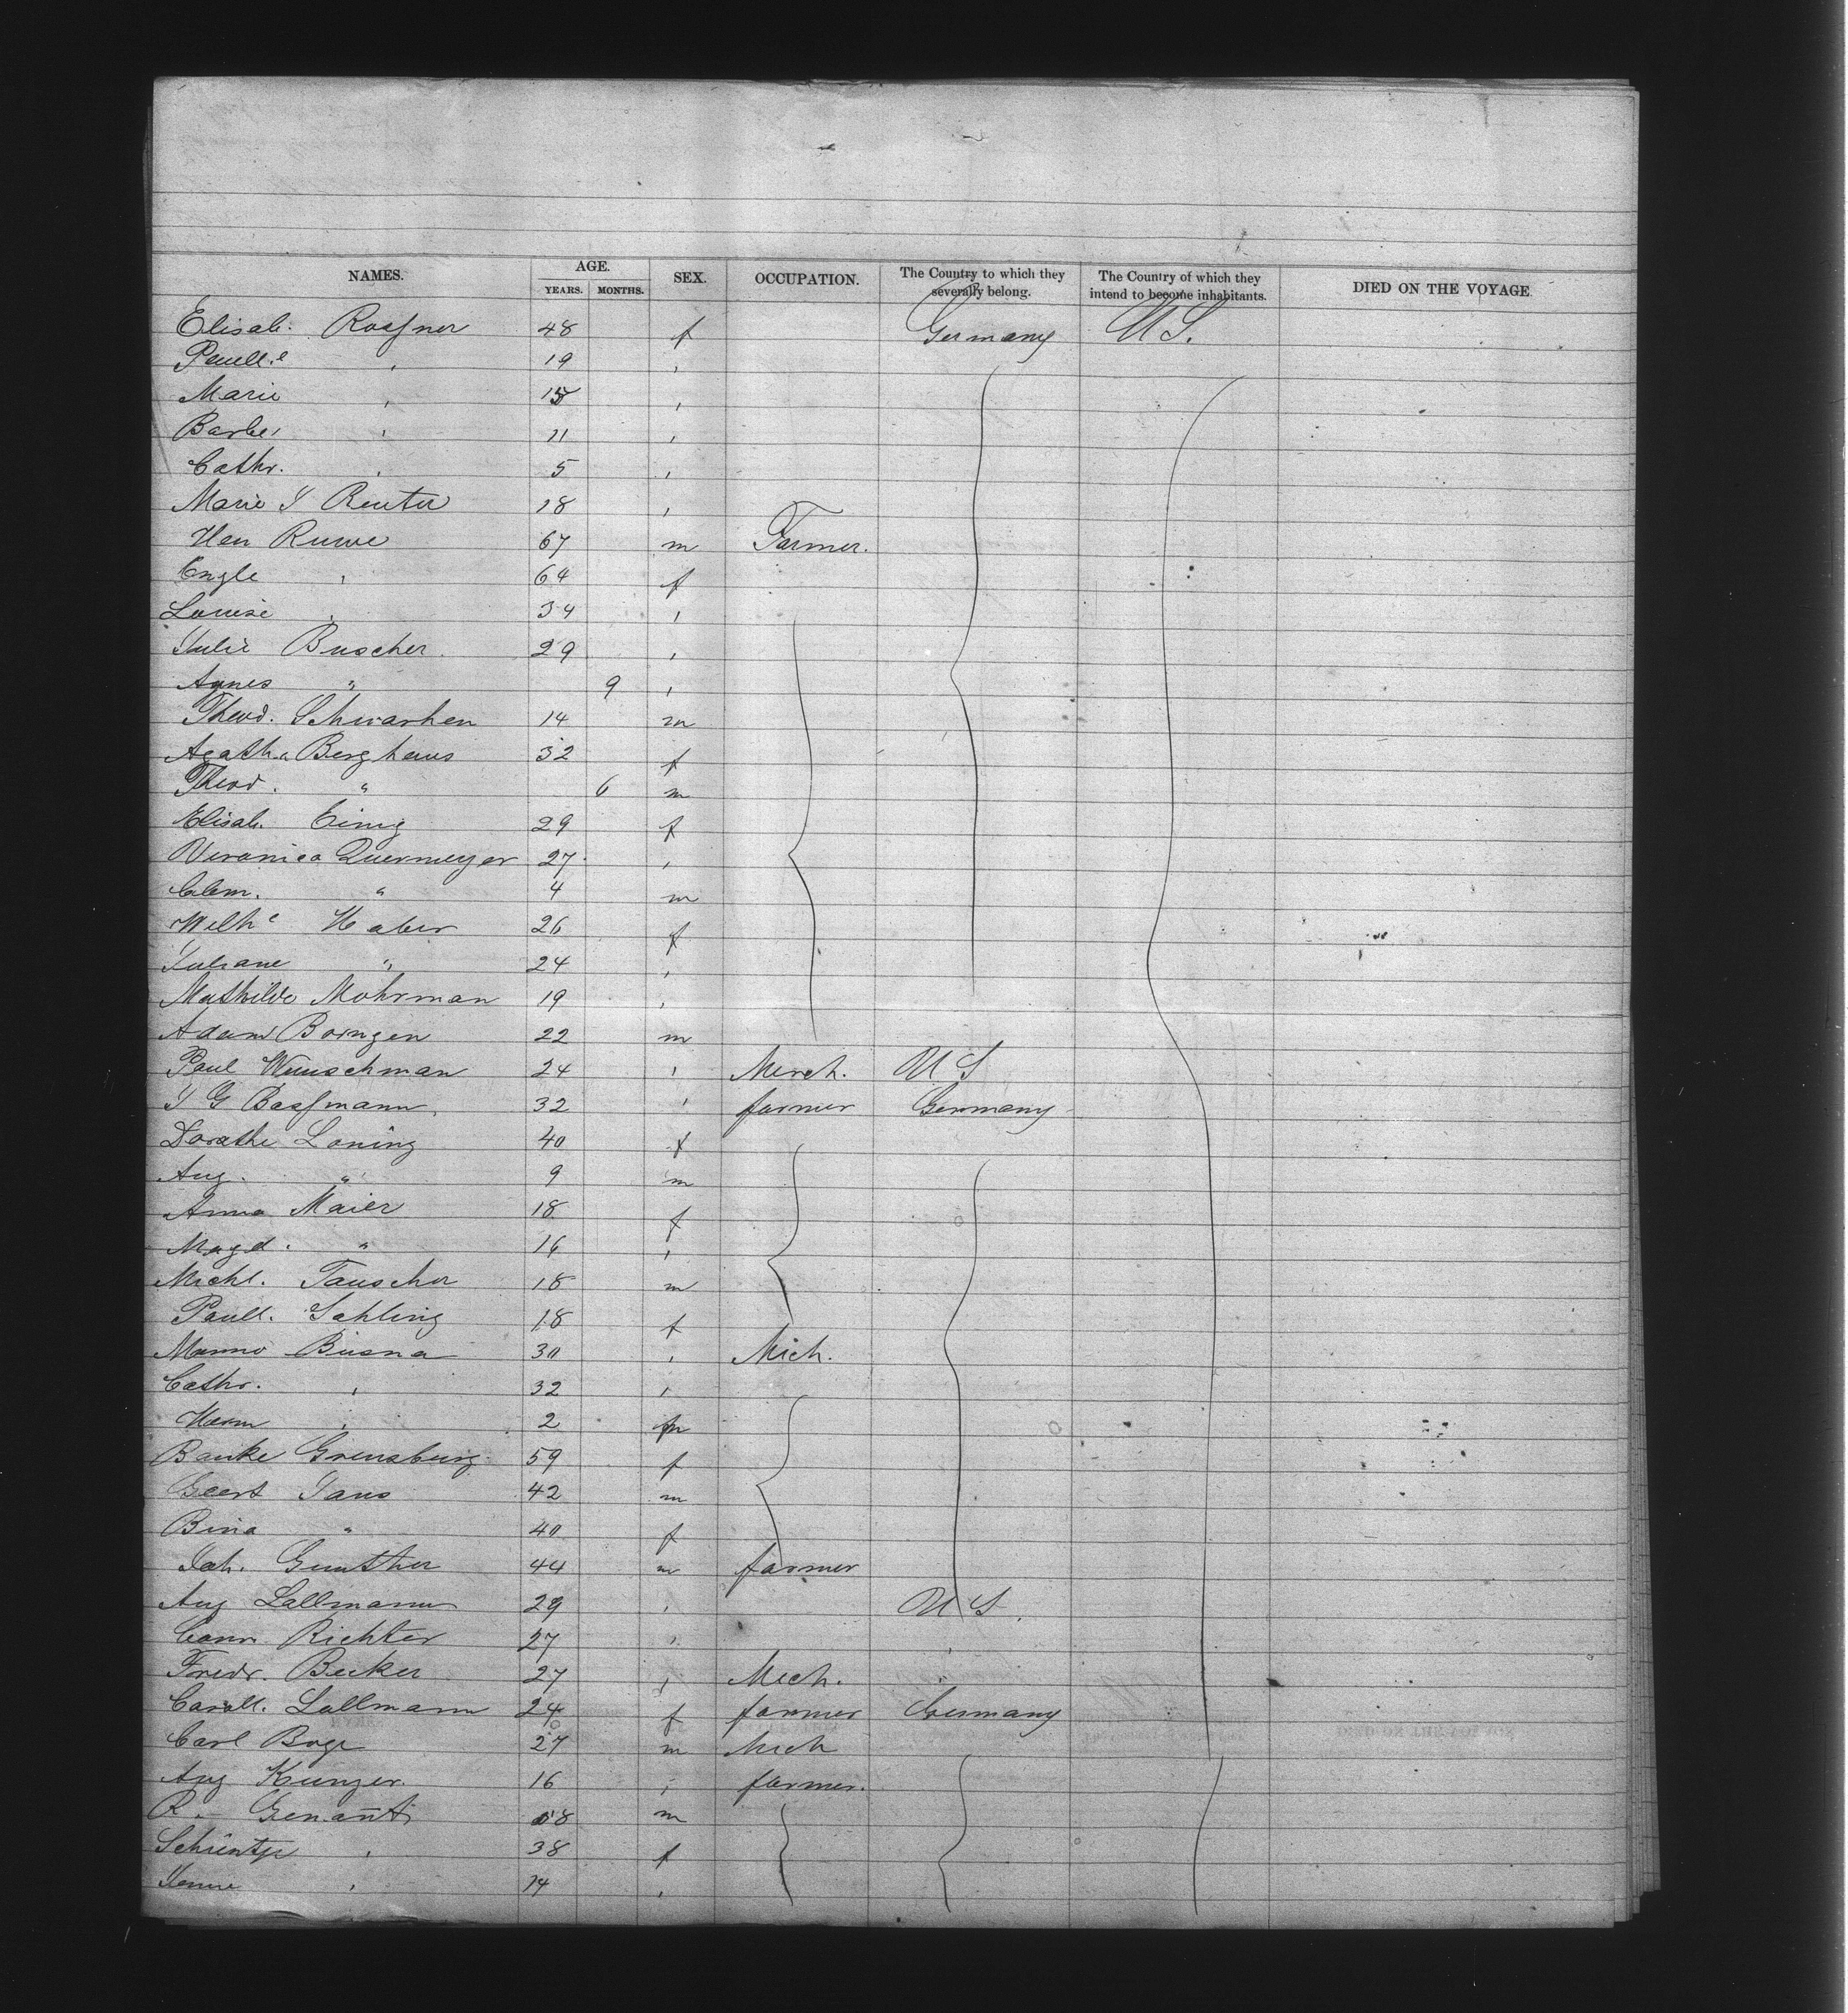 NAMES. AGE. SEX. OCCUPATION. The Country to which they severally belong. The Country of which they intend to become inhabitants. DIED ON THE VOYAGE.
YEARS. MONTHS.
Elisab. Rossner 48 f Germany U S.
Paull.e " 19 "
Marie " 15 "
Barb. " 11 "
Cathr. " 5 "
Marie J Reuter 18 "
Hen Ruwe 67 m Farmer.
Engle " 64 f
Louise " 34 "
Julie Buscher 29 "
Agnes " 9 "
Theod. Schwarhen 14 m
Agatha Berghaus 32 f
Theod. " 6 m
Elisab. Einig 29 f
Veronica Quermeyer 27 "
Clem. " 4 m
Wilhe Haber 26 f
Juliane " 24 "
Mathilde Mohrman 19 "
Adam Borngen 22 m
Paul Wunschman 24 " Merch. U S
J G Bassmann 32 " farmer Germany
Dorathe Loning 40 f
Aug. " 9 m
Anna Maier 18 f
Magd. " 16 "
Michl. Tauscher 18 m
Paull. Schling 18 f
Menno Busna 30 " Mich.
Cathr. " 32 "
Harm " 2 m
Bauke Grensburg 59 f
Geert Jans 42 m
Bina " 40 f
Joh. Gunther 44 m farmer
Aug Lallmann 29 " U S.
Conr. Richter 27 " "
Friedr. Becker 27 " Mech. "
Caroll. Lallmann 24 f farmer Germany
Carl Boge 27 m Mich
Aug Kunzer. 16 " farmer.
R. Genant 58 m
Schientje " 38 f
" 14 "